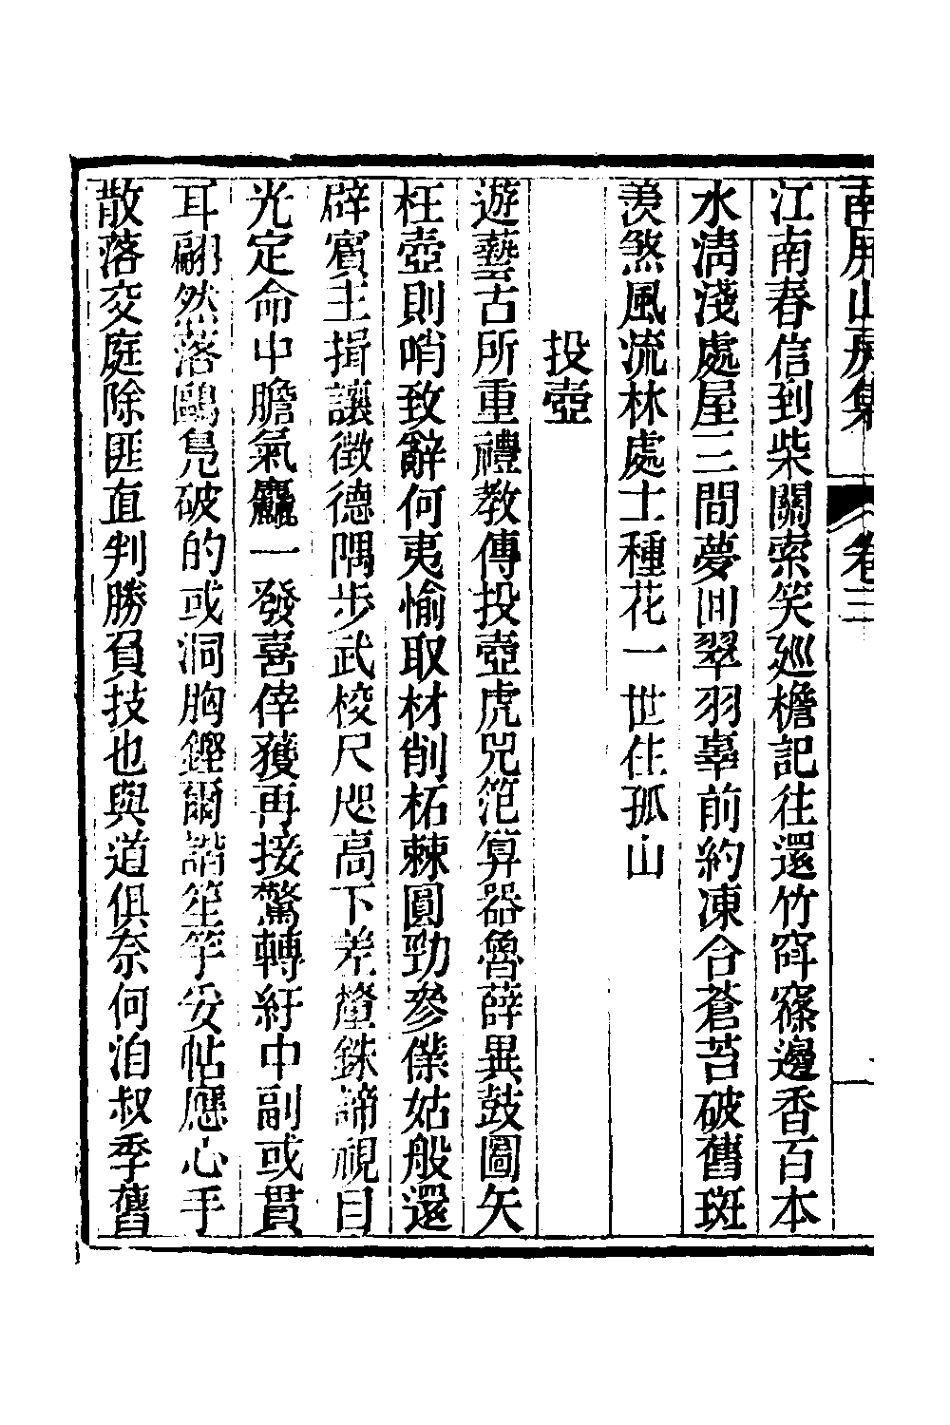 南屏山房集 卷三
江南春信到柴關索笑廵檐記往還竹窗窱邊香百本
水清淺處屋三間夢囘翠羽辜前約凍合蒼苔破舊斑
羨煞風流林處士種花一世住孤山
投壺
遊藝古所重禮教傳投壺虎兕笵算器魯薛異鼓圖矢
枉壺則哨致辭何夷愉取材削柘棘圓勁參傑姑般還
辟賓主揖讓徵德隅步武校尺咫高下差釐銖諦視目
光定命中膽氣麤一發喜倖獲再接驚轉紆中副或貫
耳翩然落鷗鳧破的或洞胸鏗爾諧笙竽妥帖應心手
散落交庭除匪直判勝負技也與道俱奈何洎叔季舊